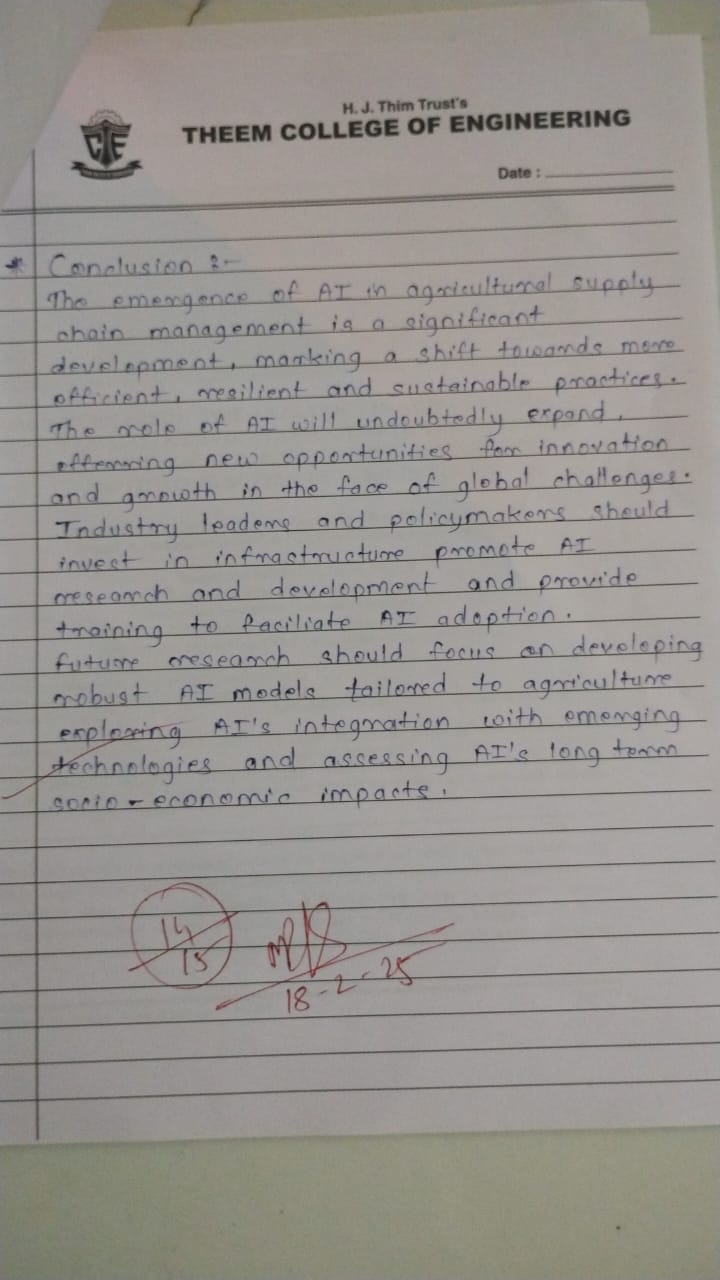 H. J. Thim Trust's
THEEM COLLEGE OF ENGINEERING
CTE
Date :
* Conclusion :-
The emergence of AI in agricultural supply
chain management is a significant
development, marking a shift towards more
efficient, resilient and sustainable practices.
The role of AI will undoubtedly expand,
offerring new opportunities for innovation
and growth in the face of global challenges.
Industry leaders and policymakers should
invest in infrastructure promote AI
research and development and provide
training to faciliate AI adoption.
future research should focus on developing
robust AI models tailored to agriculture
exploring AI's integration with emerging
technologies and assessing AI's long term
socio-economic impacts.
14
15
18-2-25